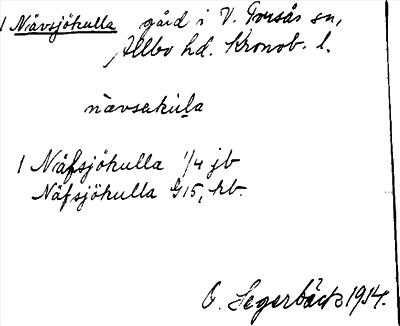 1 Nävsjökulla gård i V. Torsås sn,
Allbo hd. Kronob. l.
nàvsakúla
1 Näfsjökulla 1/4 jb
Näfsjökulla G15, kb.
O. Segerbäck 1914.